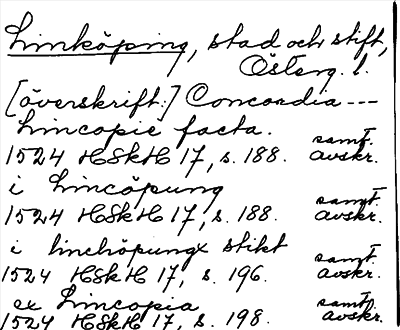 Linköping, stad och stift,
Österg. l.
[överskrift:] Concordia ---
Lincopie facta.
1524 HSkH 17, s. 188. samt. avskr.
i Lincöpung
1524 HSkH 17, s. 188. samt. avskr.
i linchöpungx stikt
1524 HSkH 17, s. 196. samt. avskr.
ex Lincopia
1524 HSkH 17, s. 198. samt. avskr.